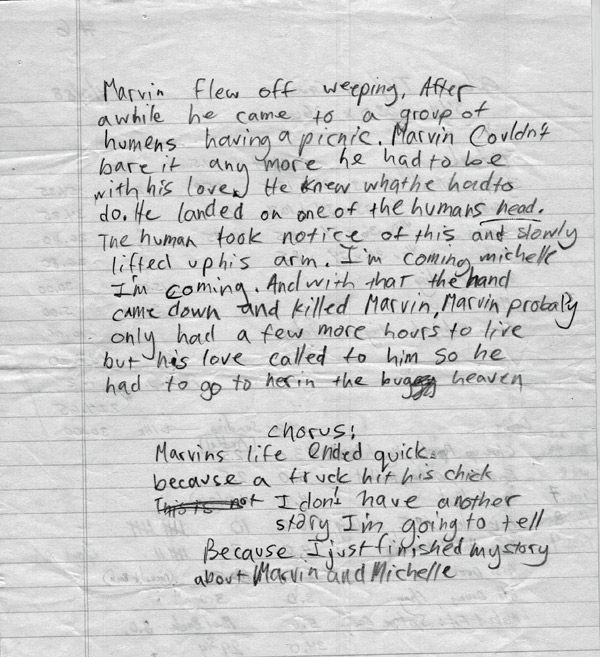 Marvin flew off weeping. After
awhile he came to a group of
humens having a picnic. Marvin Couldn't
bare it any more he had to be
with his love. He knew what he had to
do. He landed on one of the humans head.
The human took notice of this and slowly
lifted up his arm. I'm coming michelle
I'm coming. And with that the hand
came down and killed Marvin, Marvin probaly
only had a few more hours to live
but his love called to him so he
had to go to her in the bug heaven
chorus!
Marvins life ended quick.
because a truck hit his chick
This is not I don't have another
story I'm going to tell
Because I just finished my story
about Marvin and Michelle